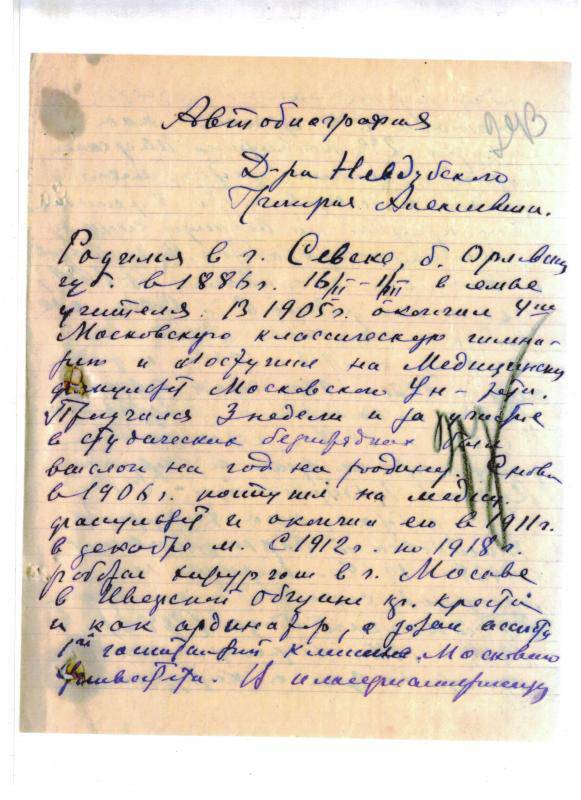 Автобиография
293
Д-ра Невдубского
Григория Алексеевича.
Родился в г. Севске, б. Орловск
губ. в 1886 г. 16/II – 1/III в семье
учителя. В 1905 г. окончил 4ую
Московскую классическую гимна-
зию и поступил на Медицинск
факультет Московского Ун-тета.
Проучился 3 недели и за участие
в студческих беспорядках был
выслан на год на родину. Снова
в 1906 г. поступил на медиц.
факультет и окончил его в 1911 г.
в декабре м. С 1912 г. по 1918 г.
работал хирургом в г. Москве
в Иверской общине кр. креста
и как ординатор, а затем ассист
госпиталь клиники Московского
Университета. В